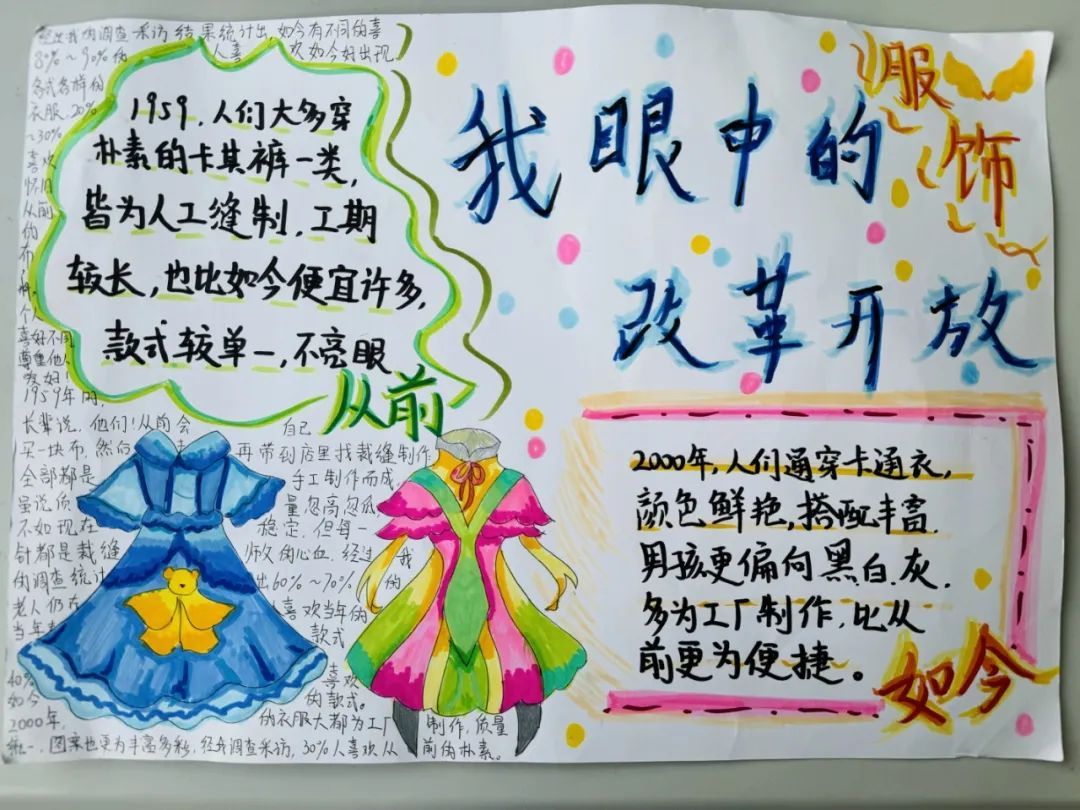 我眼中的
服饰
改革开放
1959,人们大多穿
朴素的卡其裤一类,
皆为人工缝制,工期
较长,也比如今便宜许多,
款式较单一,不亮眼
从前
2000年,人们通穿卡通衣,
颜色鲜艳,搭配丰富,
男孩更偏向黑,白,灰,
多为工厂制作,比从
前更为便捷。
如今
我的调查采访结果统计出,如今有不同的喜
80%~90%的 人喜 欢如今好出现
各式各样的
衣服,20%
~30%
喜欢
怀旧
从前
的
布
料。
个人
喜好不同
尊重他人
1959年的,
长辈说,他们!从前会 自己
买一块布,然后 再带到店里找裁缝制作
全部都是 手工制作而成,
虽说质 量忽高忽低
不如现在 稳定,但每一
针都是裁缝 师傅的心血,经过 我
的调查统计 出60%~70% 的
老人仍在 喜欢当年的
当年 款式
40% 喜欢
如今 的款式。
2000年, 的衣服大都为工厂 制作,质量
统一,图案也更为丰富多彩,经我调查采访,30%人喜欢从 前的朴素。